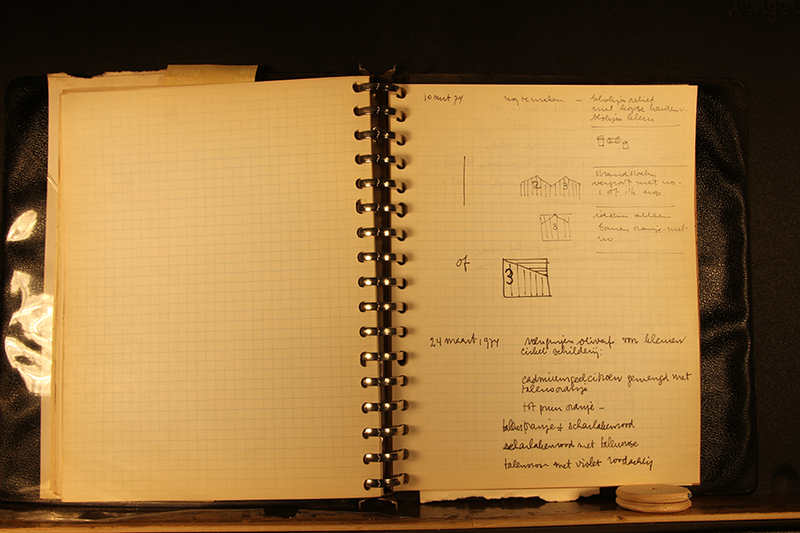 10 mrt 74 nog te maken - blokjes relief
met hoogte
blokjes kleur
strandstoelen
verfraait met no -
1 of 1½
2 3
idem alleen
banen oranje met
no
3
of
3
24 maart 1974 olieverf van kleuren
cirkel schilderij:
cadmiumgeelcitroen gemengd met
talensoranje
tot puur oranje -
talensoranje + scharlakenrood
scharlakenrood met talensrose
talensrose met violet roodachtig